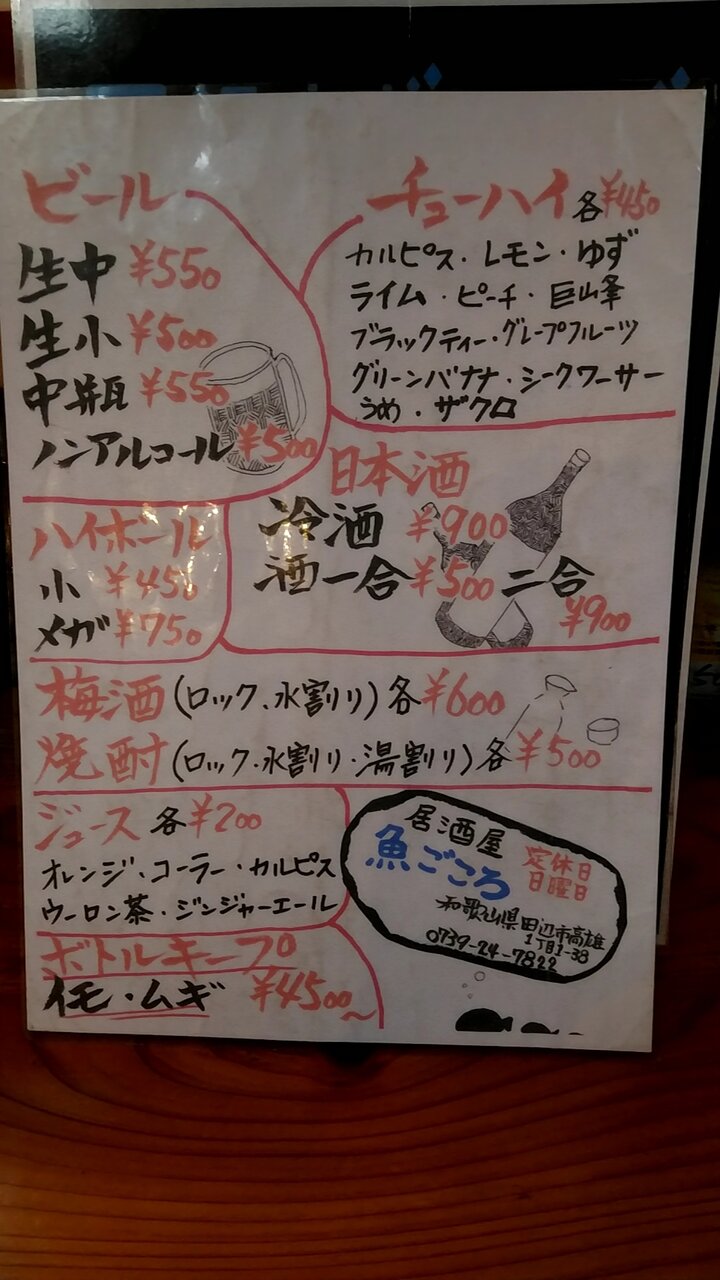 ビール
生中 ¥550
生小 ¥500
中瓶 ¥550
ノンアルコール ¥500
チューハイ 各¥450
カルピス・レモン・ゆず
ライム・ピーチ・巨峰
ブラックティー・グレープフルーツ
グリーンバナナ・シークワーサー
うめ・ザクロ
ハイボール
小 ¥450
メガ ¥750
日本酒
冷酒 ¥900
酒一合 ¥500 二合
¥900
梅酒(ロック、水割り)各¥600
焼酎(ロック・水割り・湯割り)各¥500
ジュース 各¥200
オレンジ・コーラー・カルピス
ウーロン茶・ジンジャーエール
ボトルキープ
イモ・ムギ ¥4500~
居酒屋
魚ごころ
定休日
日曜日
和歌山県田辺市高雄
1丁目1-38
0739-24-7822